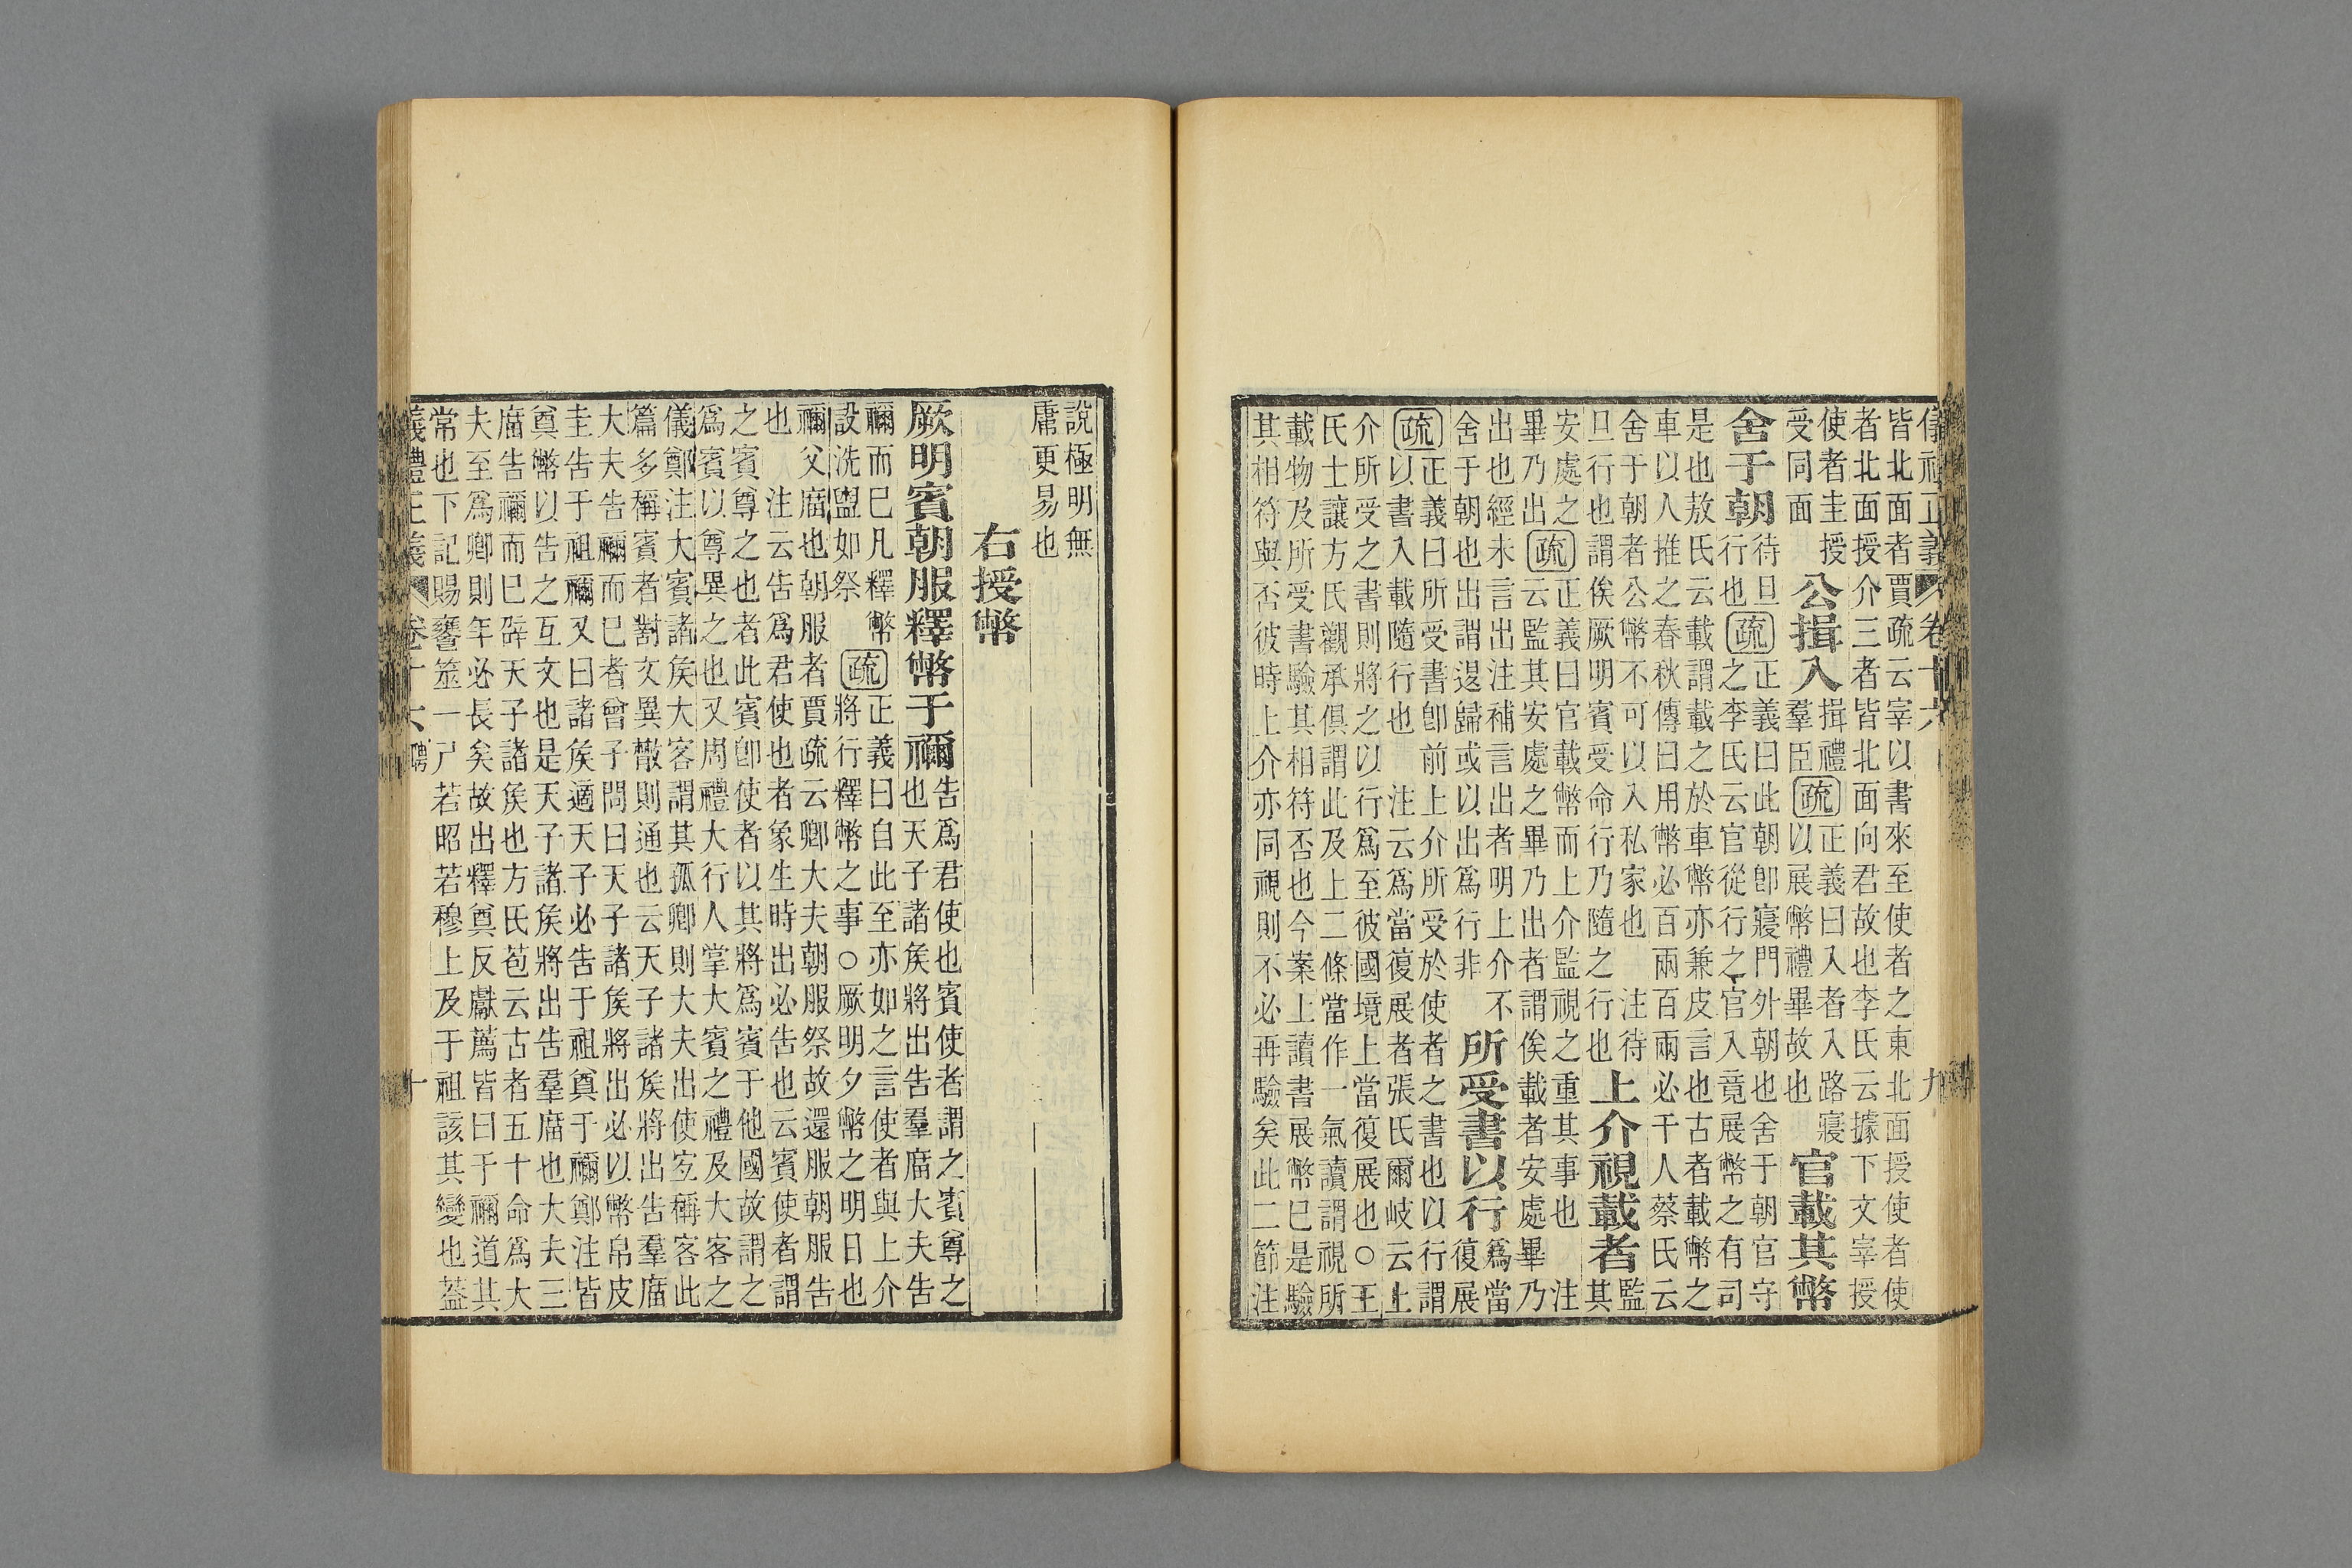 儀禮正義 卷十六 九
皆北面者賈疏云宰以書來至使者之東北面授使者使
者北面授介三者皆北面向君故也李氏云據下文宰授
使者圭授
受同面
公揖入
揖禮
羣臣
疏
正義曰入者入路寢
以展幣禮畢故也
官載其幣
舍于朝
待旦
行也
疏
正義曰此朝卽寢門外朝也舍于朝官守
之李氏云官從行之官入竟展幣之有司
是也敖氏云載謂載之於車幣亦兼皮言也古者載幣之
車以人推之春秋傳曰用幣必百兩百兩必千人蔡氏云
舍于朝者公幣不可以入私家也 注待
旦行也謂俟厥明賓受命行乃隨之行也
上介視載者
監
其
安處之
畢乃出
疏
正義曰官載幣而上介監視之重其事也 注
云監其安處之畢乃出者謂俟載者安處畢乃
出也經未言出注補言出者明上介不
舍于朝也出謂退歸或以出爲行非
所受書以行
爲當
復展
疏
正義曰所受書卽前上介所受於使者之書也以行謂
以書入載隨行也 注云爲當復展者張氏爾岐云上
介所受之書則將之以行爲至彼國境上當復展也○王
氏士讓方氏觀承俱謂此及上二條當作一氣讀謂視所
載物及所受書驗其相符否也今案上讀書展幣已是驗
其相符與否彼時上介亦同視則不必再驗矣此二節注
說極明無
庸更易也
右授幣
厥明賓朝服釋幣于禰
告爲君使也賓使者謂之賓尊之
也天子諸矦將出告羣廟大夫告
禰而已凡釋幣
設洗盥如祭
疏
正義曰自此至亦如之言使者與上介
將行釋幣之事○厥明夕幣之明日也
禰父廟也朝服者賈疏云卿大夫朝服祭故還服朝服告
也 注云告爲君使也者象生時出必告也云賓使者謂
之賓尊之也者此賓卽使者以其將爲賓于他國故謂之
爲賓以尊異之也又周禮大行人掌大賓之禮及大客之
儀鄭注大賓諸矦大客謂其孤卿則大夫出使宐稱客此
篇多稱賓者對文異㪚則通也云天子諸矦將出告羣廟
大夫告禰而已者曾子問曰天子諸矦將出必以幣帛皮
圭告于祖禰又曰諸矦適天子必告于祖奠于禰鄭注皆
奠幣以告之互文也是天子諸矦將出告羣廟也大夫三
廟告禰而已辟天子諸矦也方氏苞云古者五十命爲大
夫至爲卿則年必長矣故出釋奠反獻薦皆曰于禰道其
常也下記賜饔筮一尸若昭若穆上及于祖該其變也葢
儀禮正義 卷十六 聘 十